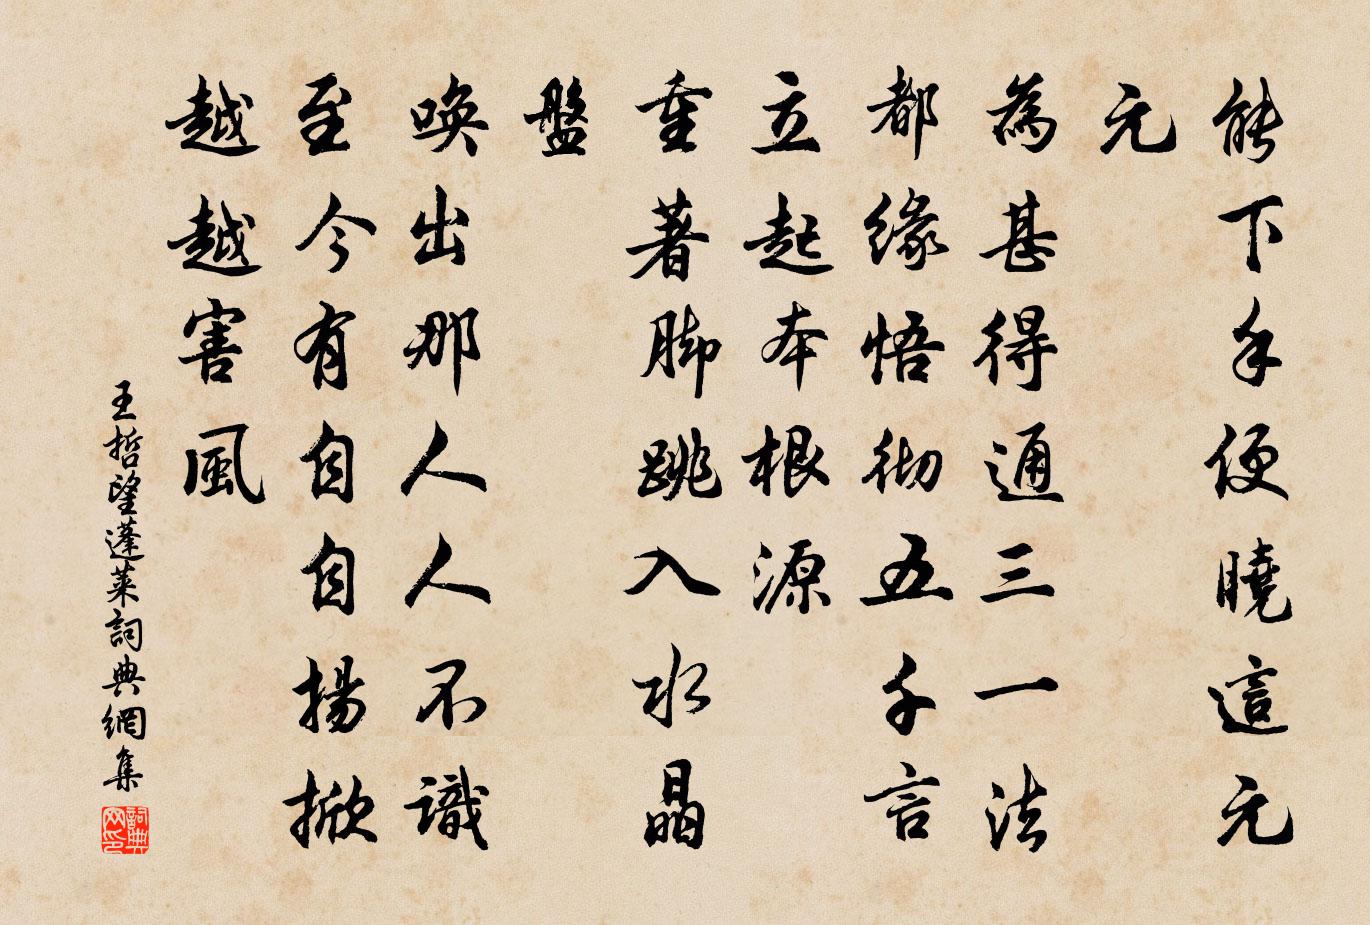 能下手便曉這元
元
為甚得通三一法
都緣悟彻五千言
立起本根源
重著脚跳入水晶
盤
唤出那人人不識
至今有自自揚掀
越越害風
王哲望蓬莱詞典網集
詞典网印